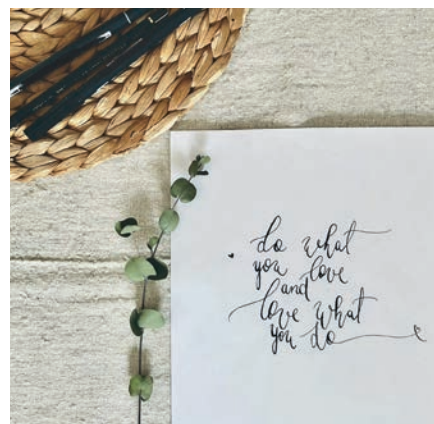 do what
you love
and
love what
you do